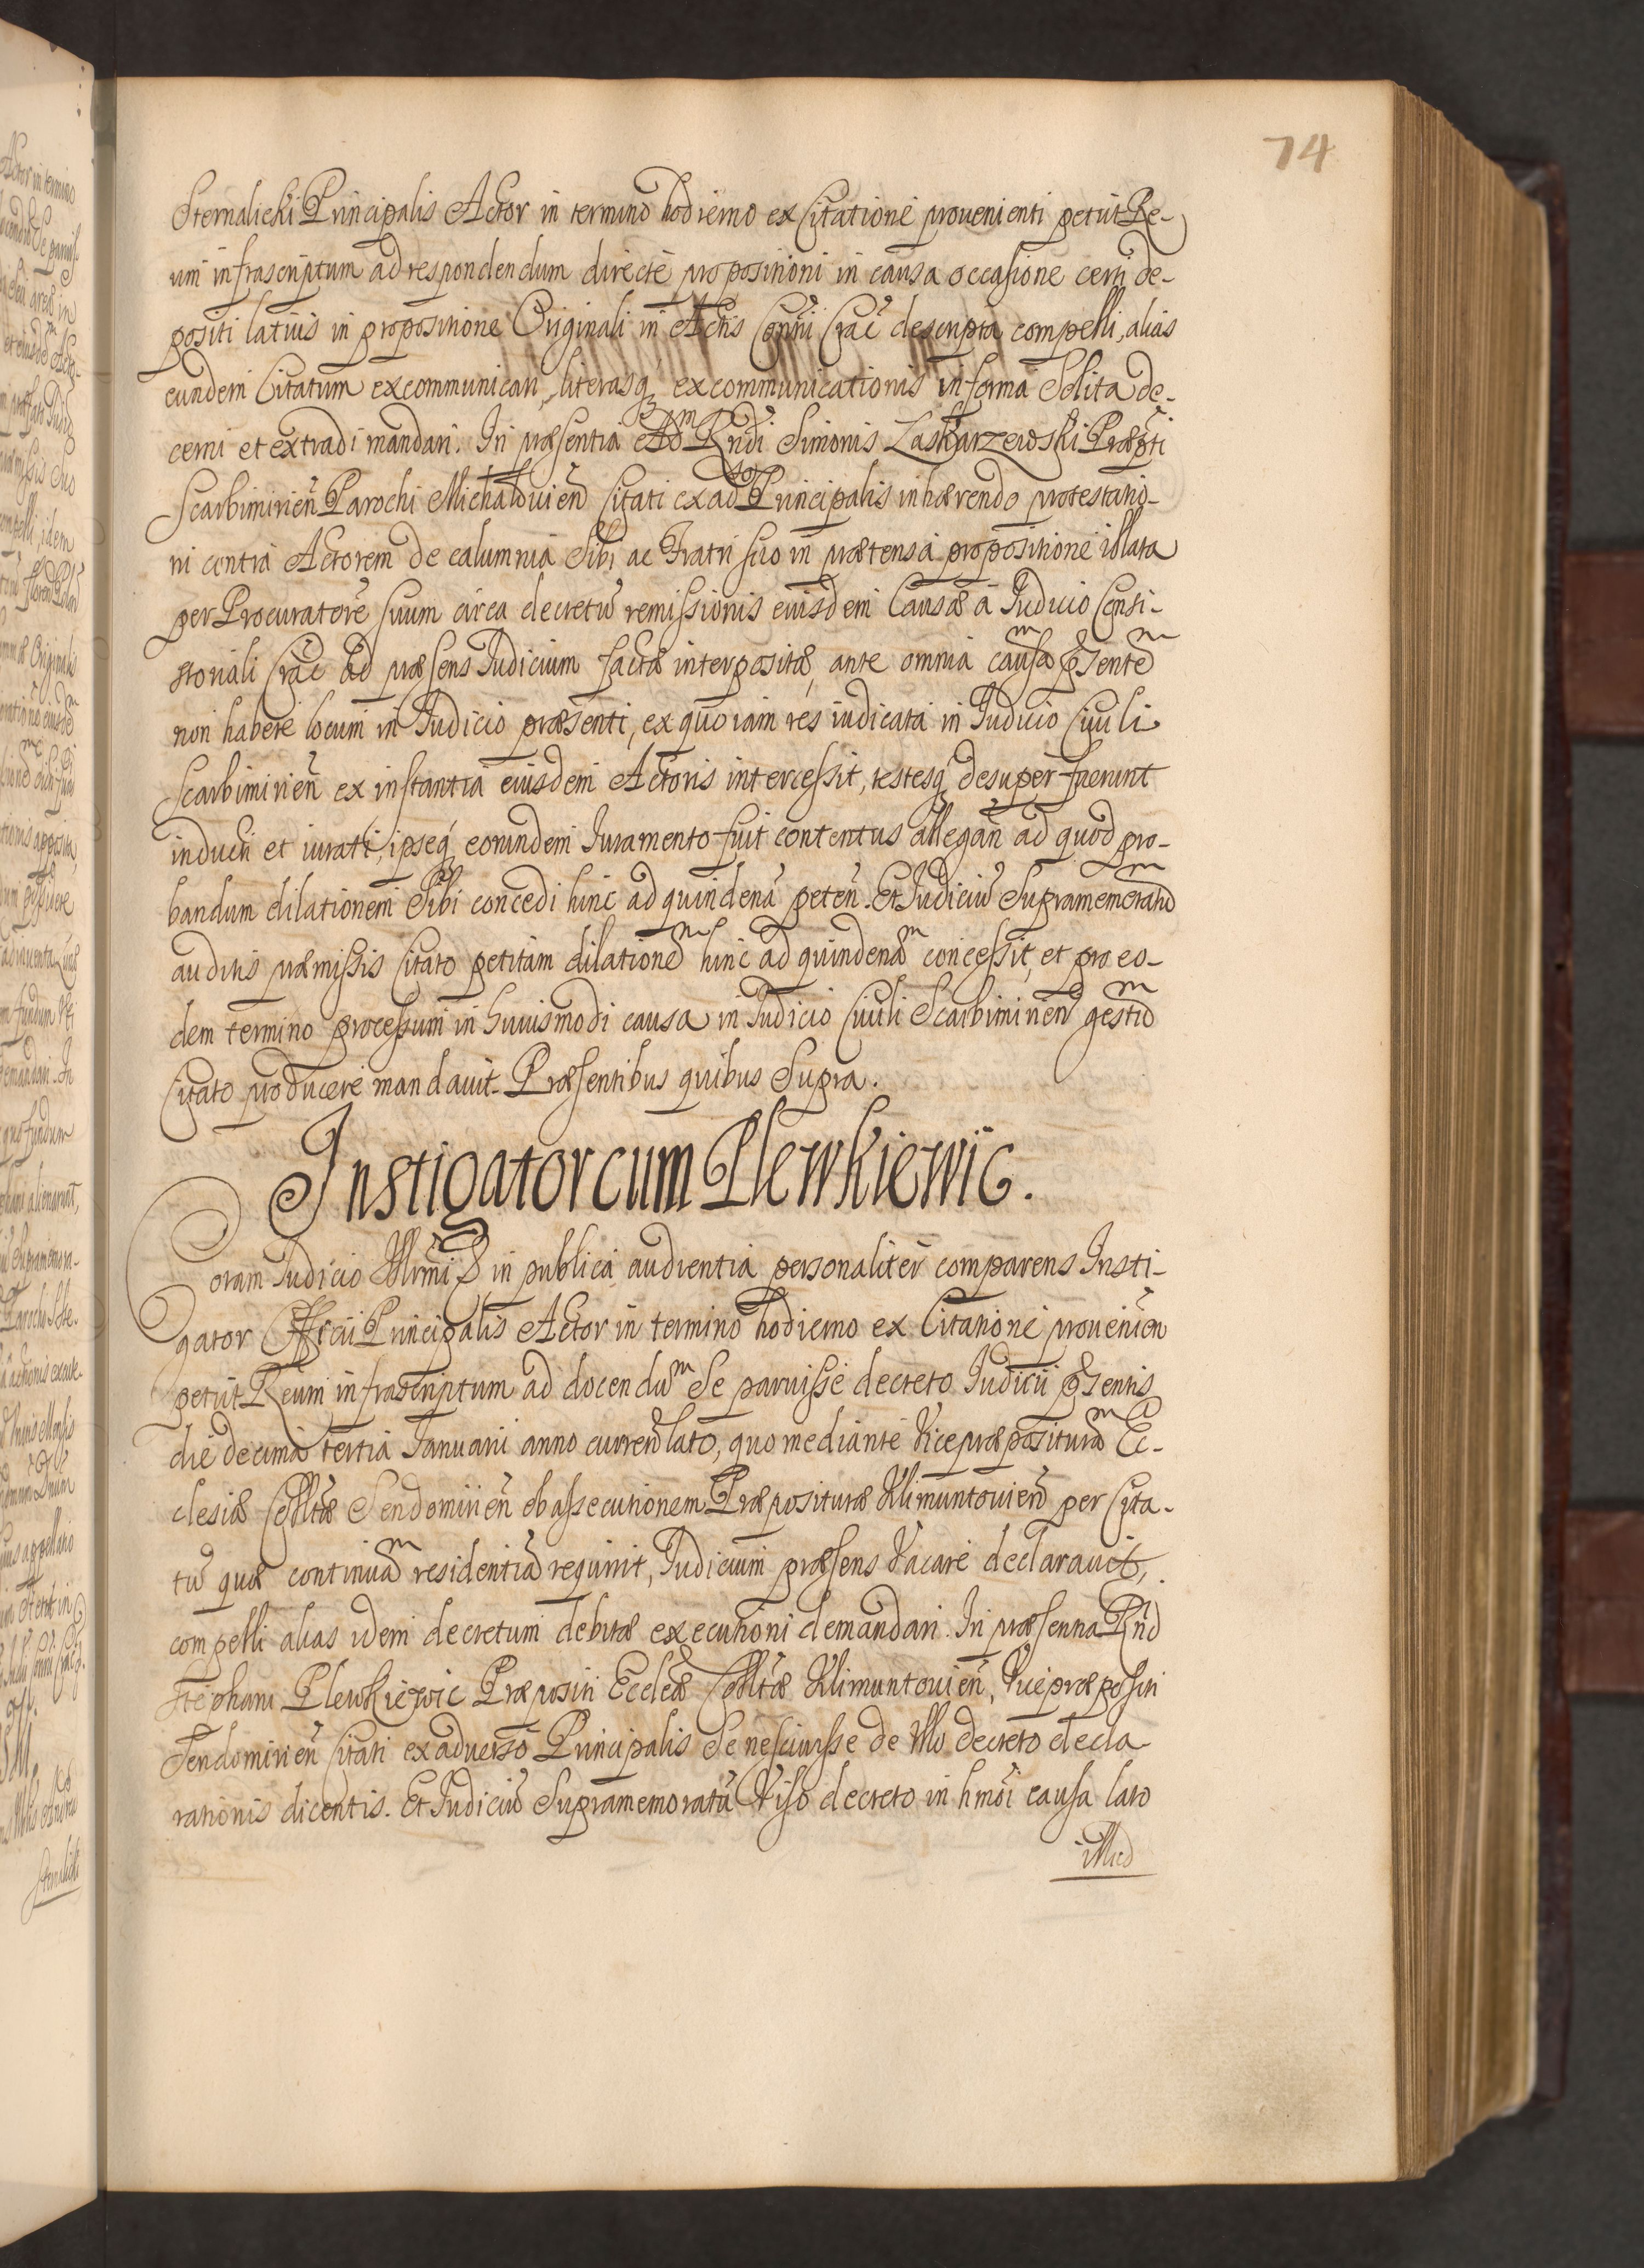 74
Sternalicki Principalis Actor in termino hodierno ex Citatione prouenienti petiit Re-
um infrascriptum ad respondendum directe propositioni in causa occasione certi de-
positi latius in propositione Originali in Actis Consrii Crac descripta compelli, alias
eundem Citatum excommunicari, literasq excommunicationis in forma Solita de-
cerni et extradi mandari. In præsentia Adm Rndi Simonis Laskarzewski Præpti
Scarbimirien Parochi Michalouien Citati ex adso Principalis inhærendo protestatio-
ni contra Actorem de calumnia Sibi ac Fratri suo in prætensa propositione illata
per Procuratore suum circa decretu remissionis eiusdem Causæ a Iudicio Consi-
storiali Crac ad præsens Iudicium factæ interpositæ, ante omnia causam psentem
non habere locum in Iudicio præsenti, ex quo iam res iudicata in Iudicio Ciuili
Scarbimirien ex instantia eiusdem Actoris intercessit, testesq desuper fuerunt
inducti et iurati, ipseq eorundem Iuramento fuit contentus allegan ad quod pro-
bandum dilationem Sibi concedi hinc ad quindena peten. Et Iudiciu Supramemoratum
auditis præmissis Citato petitam dilationem hinc ad quindenam concessit, et pro eo-
dem termino processum in huiusmodi causa in Iudicio Ciuili Scarbimirien gestum
Citato producere mandauit. Præsentibus quibus Supra.
Instigator cum Plewkiewic.
Coram Iudicio Illrmi S in publica audientia personaliter comparens Insti-
gator Officii Principalis Actor in termino hodierno ex Citatione prouenien
petiit Reum infrascriptum ad docendum Se paruisse decreto Iudicii psentis
die decima tertia Ianuarii anno curren lato, quo mediante Vicepræposituram Ec-
clesiæ Colltæ Sendomirien ob assecutionem Præpositura Klimuntouien per Cita-
tu quæ continuam residentia requirit, Iudicium præsens Vacare declarauit,
compelli alias idem decretum debitæ executioni demandari. In præsentia Rnd
Stephani Plewkiewic Præpositi Eccleæ Colltæ Klimuntouien, Vicepræpositi
Sendomirien Citati ex aduerso Principalis Se nesciuisse de illo decreto decla-
rationis dicentis. Et Iudiciu Supramemoratu Viso decreto in hmoi causa lato